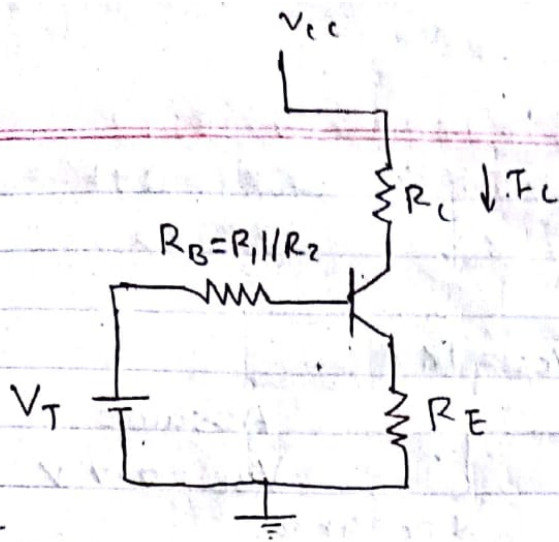 Vcc
RC ↓ IC
RB=R1||R2
VT
RE